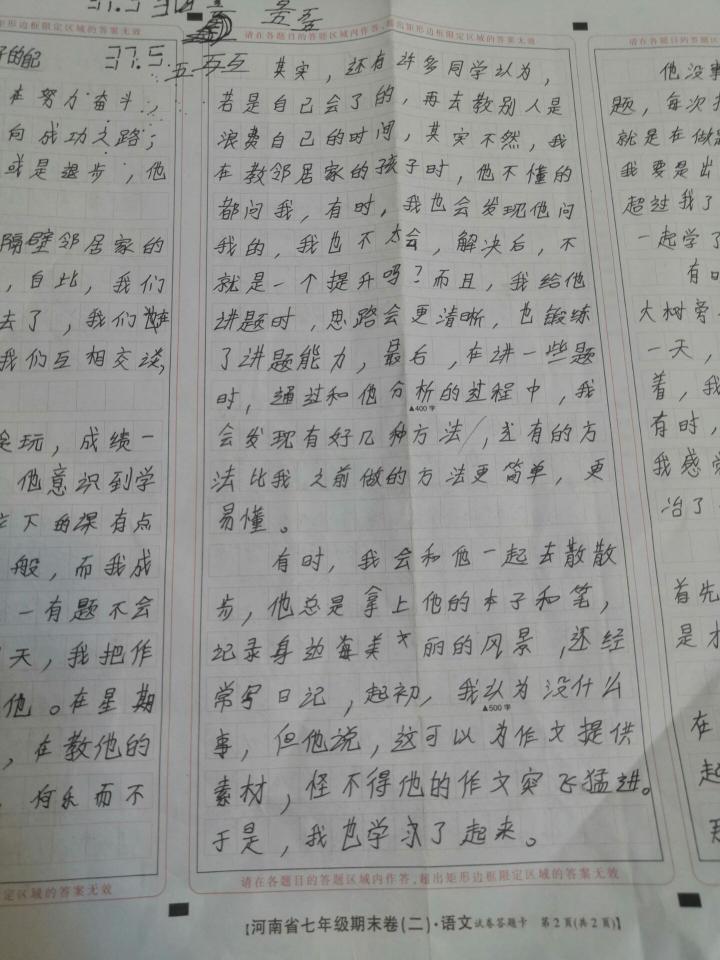 37.5
37.5
请在各题目的答题区域内作答,超出矩形边框限定区域的答案无效
五 五 五
其实，还有许多同学认为，
若是自己会了的，再去教别人是
浪费自己的时间，其实不然，我
在教邻居家的孩子时，他不懂的
都问我，有时，我也会发现他问
我的，我也不太会，解决后，不
就是一个提升吗？而且，我给他
讲题时，思路会更清晰，也锻练
了讲题能力，最后，在讲一些题
时，通过和他分析的过程中，我
▲400字
会发现有好几种方法，还有的方
法比我之前做的方法更简单，更
易懂。
有时，我会和他一起去散散
步，他总是拿上他的本子和笔，
记录身边每美丽的风景，还经
常写日记，起初，我认为没什么
▲500字
事，但他说，这可以为作文提供
素材，怪不得他的作文突飞猛进。
于是，我也学习了起来。
请在各题目的答题区域内作答,超出矩形边框限定区域的答案无效
【河南省七年级期末卷(二)·语文试卷答题卡 第2页(共2页)】
域内作答,超出矩形边框限定区域的答案无效
好的配
在努力奋斗，
向成功之路；
或是退步，他
隔壁邻居家的
，自此，我们
去了，我们
我们互相交谈，
玩，成绩一
他意识到学
下的课有点
般，而我成
一有题不会
天，我把作
他。在星期
，在教他的
，何乐而不
定区域的答案无效
请在各题目的答题
他没事
题，每次
就是在做题
我要是出
超过我了
一起学了
有时
大树旁
一天，
着，我
有时，
我感觉
冶了
首先
是
在
起
那
请在各题目的答题